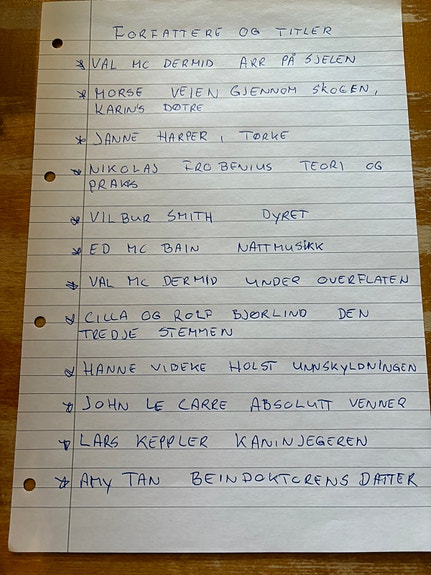 FORFATTERE OG TITLER
* VAL MC DERMID ARR PÅ SJELEN
* MORSE VEIEN GJENNOM SKOGEN,
KARINS DØTRE
* JANNE HARPER, TØRKE
* NIKOLAJ FROBENIUS TEORI OG
PRAKIS
* VILBUR SMITH DYRET
* ED MC BAIN NATTMUSIKK
* VAL MC DERMID UNDER OVERFLATEN
* CILLA OG ROLF BJØRLIND DEN
TREDJE STEMMEN
* HANNE VIDEKE HOLST UNNSKYLDNINGEN
* JOHN LE CARRE ABSOLUTT VENNER
* LARS KEPPLER KANINJEGEREN
* AMY TAN BEINDOKTORENS DATTER